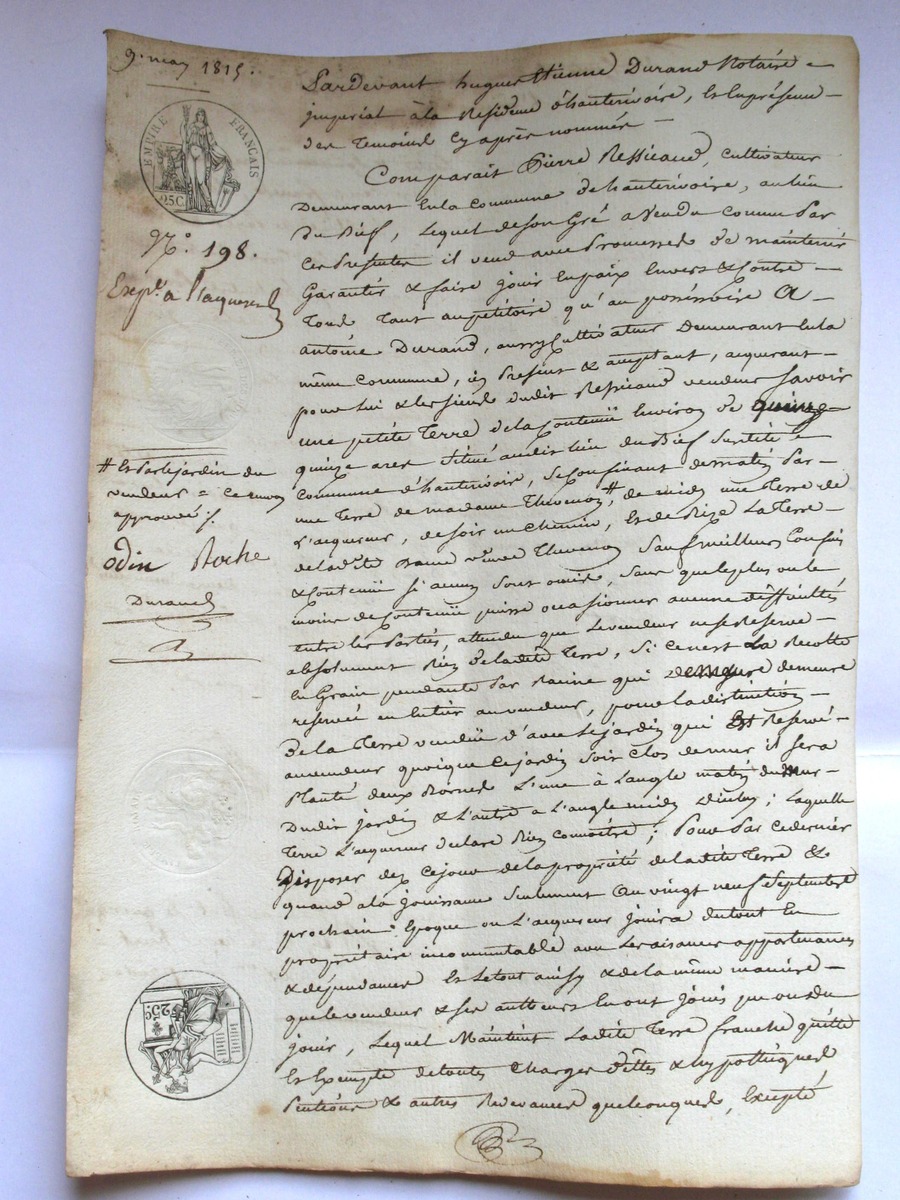 9. may 1815.
EMPIRE FRANÇAIS
25C.
N.° 198.
Exp.e a l'aquereur
# Et par le jardin du
vendeur = ce renvoy
approuvé /.
Odin Roche
Durand
25C.
Pardevant hugues Etienne Durand Notaire =
imperial à la Residence d'hauterivoire, Et En présence
des temoins Cy après nommés —
Comparait Pierre Ressicaud, cultivateur
Demeurant En la commune de hauterivoire, au lieu
Du Bief, Lequel de son Gré a Vendu comme Par
Ces Presentes il vend avec Promesses de maintenir
Garantir & faire jouir En paix Envers & Contre —
Tous Tant au petitoire qu'au possessoire A —
antoine Durand, aussy Cultivateur Demeurant En la
même Commune, icy Present & acceptant, acquerant —
pour lui & les siens dudit Ressicaud vendeur Savoir
une petite Terre de la Contenüe Environ de quinze
quinze ares Situé audit lieu du Bief Susdite
Commune d'hauterivoire, Se Confinant de matin Par —
une Terre de madame Thevenon #, de midy une Terre de
L'acquereur, de soir un Chemin, Et de Bize La Terre —
de ladite Dame veuve Thevenon Sauf meilleurs Confins
& Contenüe Si aucuns Sont omis, Sans que le plus ou le
moins de Contenüe puisse occasionner aucune difficultés
Entre les Parties, attendu que Le vendeur ne se Reserve —
absolument Rien de ladite Terre, Si ce n'est La Recolte
En Grain pendante Par Racine qui demeure demeure
reservée en Entier au vendeur, pour la distinction —
De la Terre vendüe d'avec Le jardin qui Est Reservé —
au vendeur quoique Ce jardin soit Clos de mur il sera
Planté deux Bornes L'une à L'angle matin du mur —
Dudit jardin & L'autre a L'angle midy D'icelui; Laquelle
Terre L'acquereur declare Bien Connoitre; Pour Par Ce dernier
Disposer dez Ce jour de la propriété de ladite Terre &
quand a la jouissance Seulement Au vingt neuf Septembre
prochain: Epoque ou L'acquereur jouira du tout En
propriétaire incommutable avec Les aisances appartenances
& dependances Et Le tout ainsy & de la même maniere —
que le vendeur & Ses autheurs En ont joüis pu ou dû
jouir, Lequel Maintient Ladite Terre franche quitte
Et Exempte de toutes Charges dettes & hypotheques
Pentions & autres Redevances quelconques, Excepté